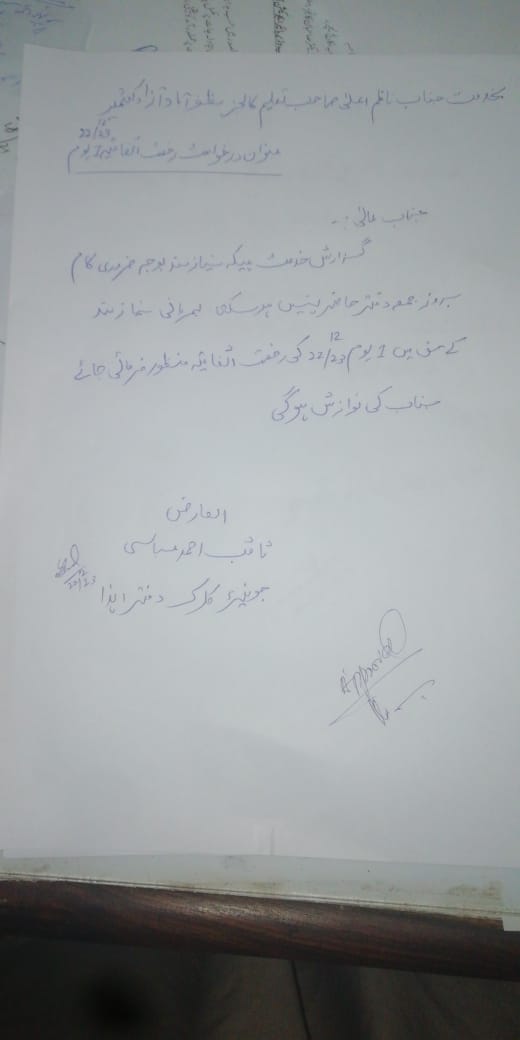 بخدمت جناب ناظم اعلیٰ صاحب تعلیم کالجز مظفرآباد آزاد کشمیر
عنوان درخواست رخصت اتفاقیہ 1 یوم 22/12/23
جناب عالیٰ :-
گزارش خدمت ہیکہ نیازمند بوجہ ضروری کام
بروز جمعہ دفتر حاضر نہیں ہو سکے بمہربانی نیازمند
کے حق میں 1 یوم 22/12/23 کی رخصت اتفاقیہ منظور فرمائی جائے
جناب کی نوازش ہوگی
العارض
ثاقب احمد عباسی
جونیئر کلرک دفتر ہٰذا
Approved